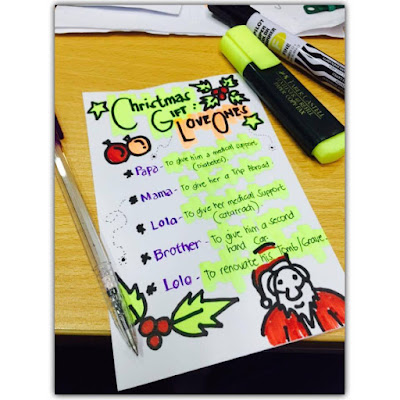 Christmas
GIFT :
LOVE ONES
* Papa - To give him a medical support
(diabetes)
* Mama - To give her a Trip Abroad
* Lola - To give her medical Support
(catarach)
* Brother - To give him a second
hand Car
* Lolo - to renovate his Tomb/Grave..
PILOT
SUPER